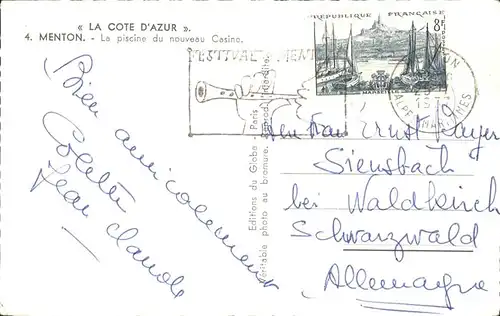 « LA COTE D'AZUR ».
4. MENTON. - La piscine du nouveau Casino.
REPUBLIQUE FRANÇAISE
8F
MARSEILLE
FESTIVAL MENT
ALPES MARITIMES
Editions du Globe - Paris
Véritable photo au bromure.
Bien amicalement
Colette
Jean Claude
Ernst
Siensbach
bei Waldkirch
Schwarzwald
Allemagne